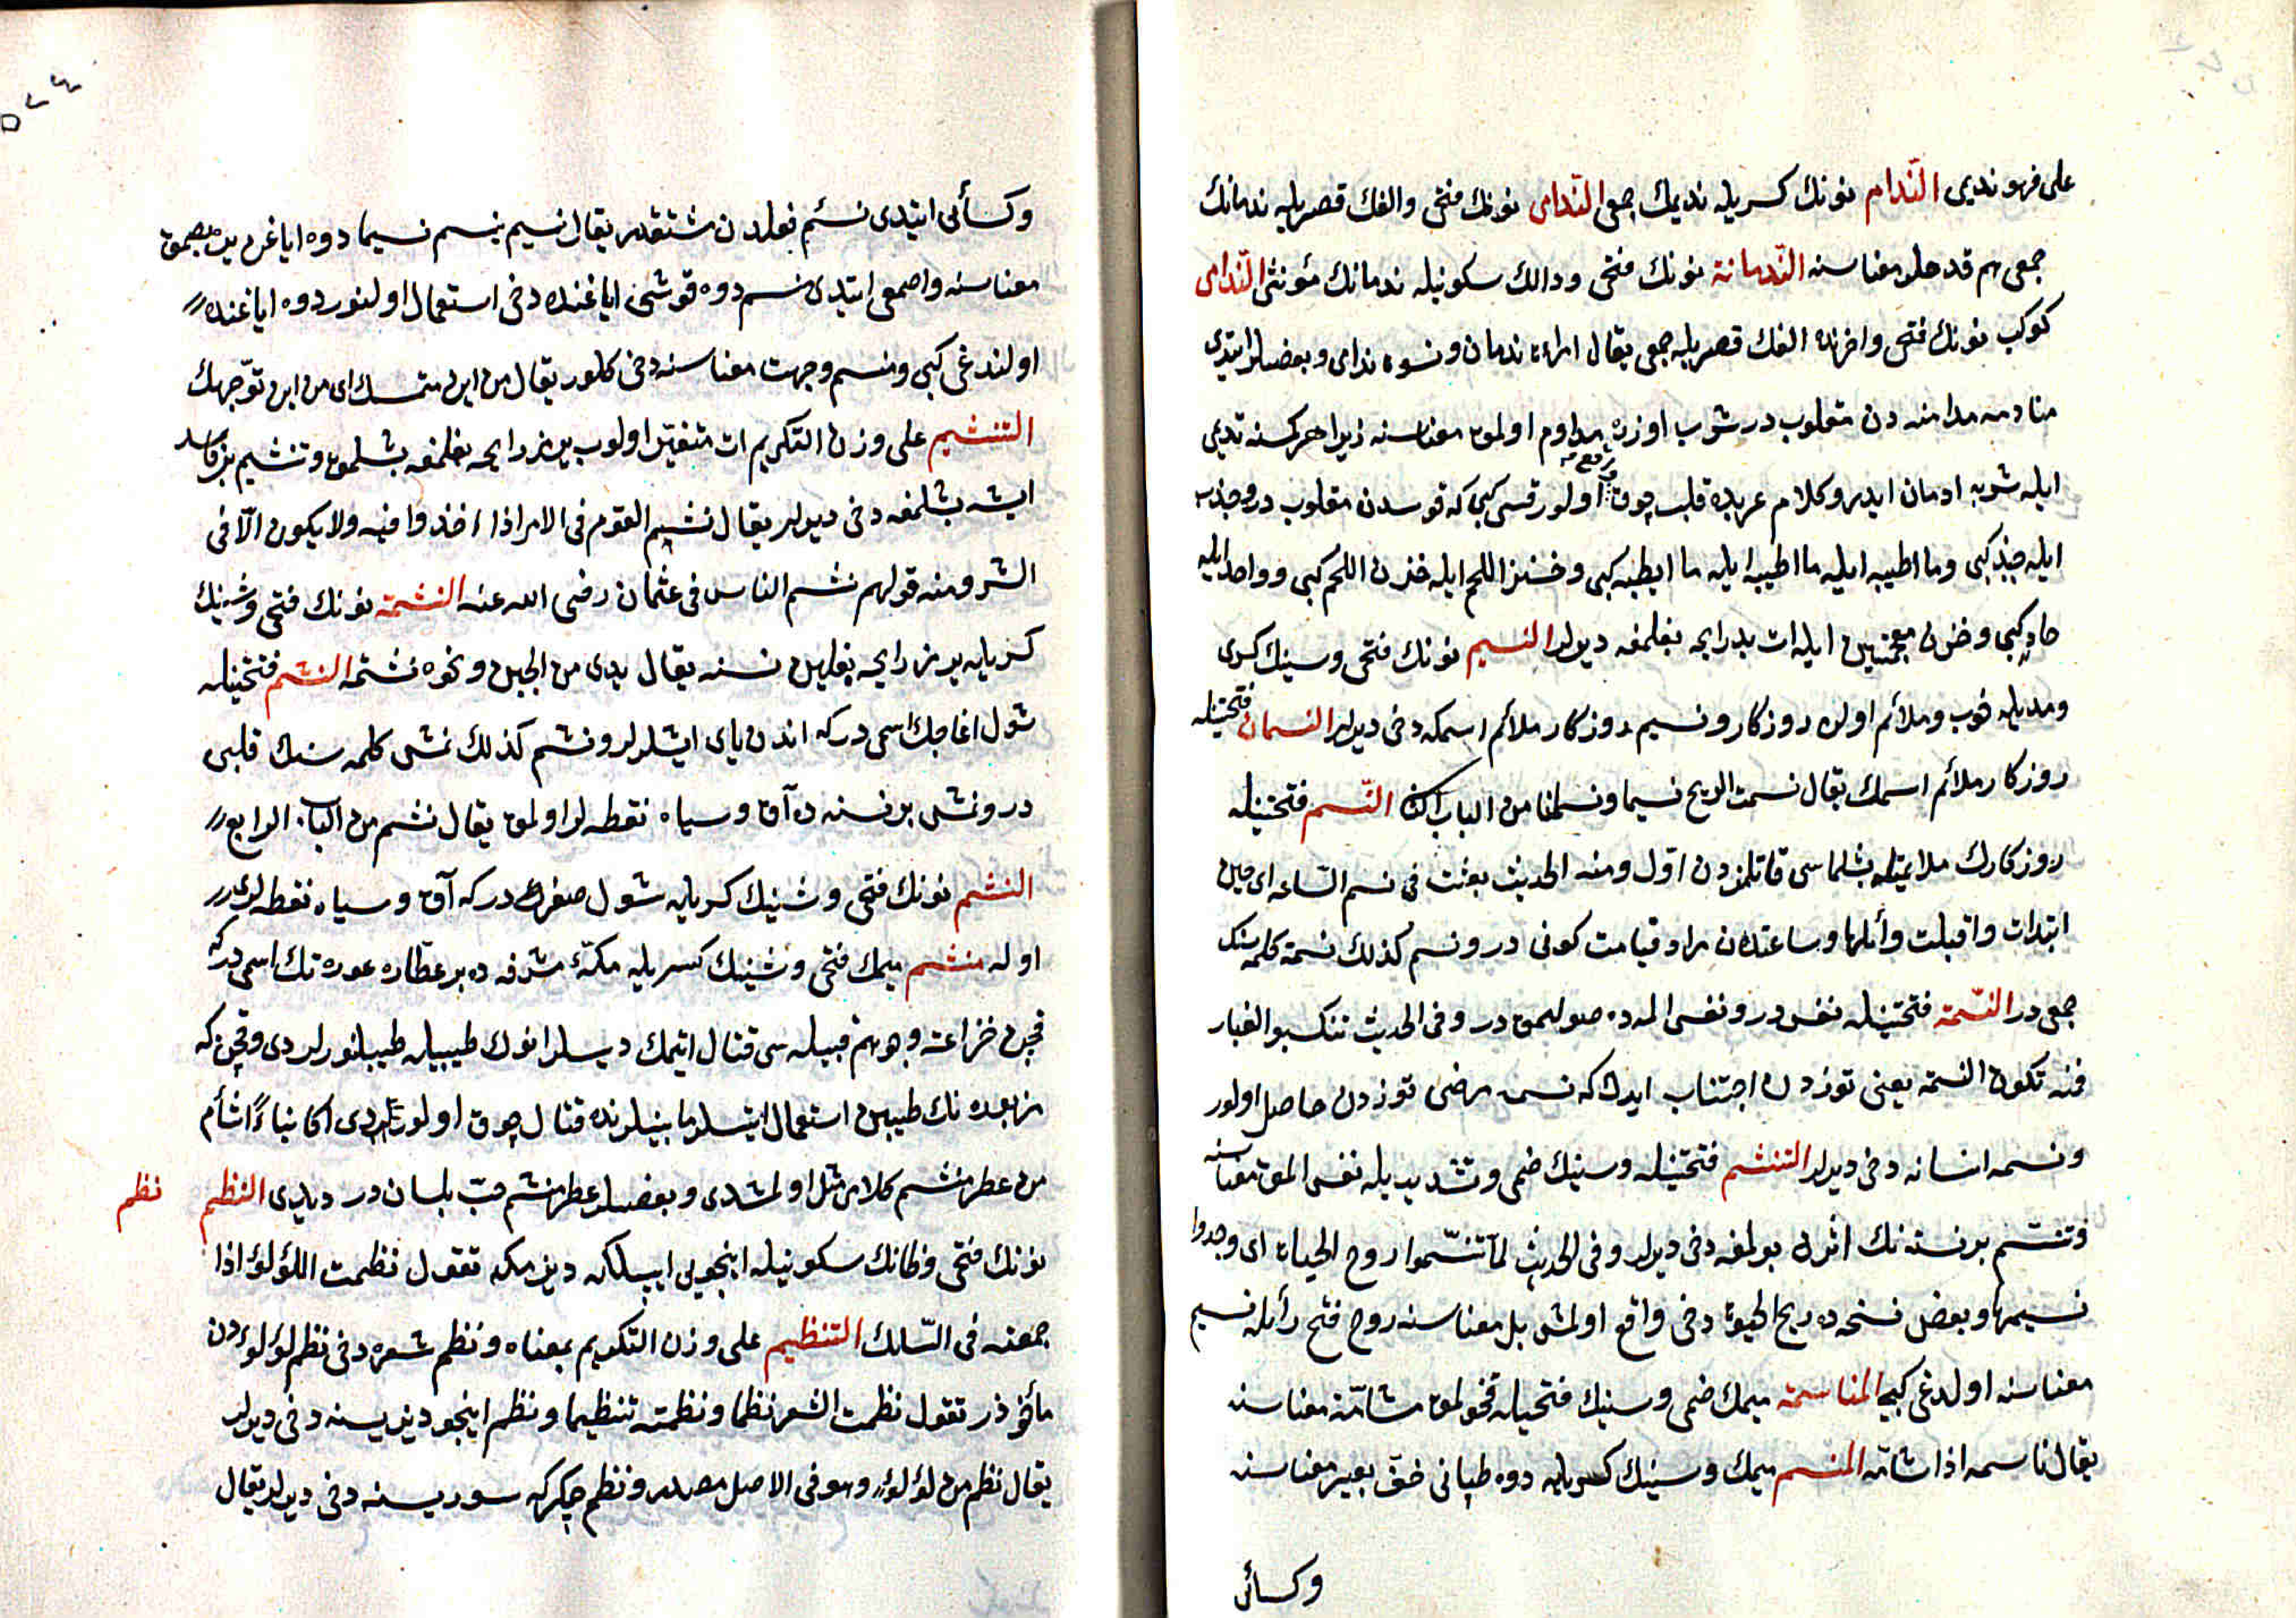 على فهو نديم الندام نونك كسريله نديمك جمعى الندامى نونك فتحى والفك قصريله ندمانك
جمعى هم قدحلر معناسنه الندمانة نونك فتحى ودالك سكونيله ندمانك مؤنثى الندامى
كوكب نونك فتحى واخرنده الفك قصريله جمعى يقال امراة ندمان ونسوه ندامى وبعضيلر ايتدى
منادمه مدامنه دن مقلوب در شرب اوزره مداوم اولمق معناسنه زيرا هر كسنه نديمى
ايله شربه ادمان ايدر وكلام عربده قلب چوق اولور قسى كبى كه قوسدن مقلوب در وجذب
ايله جبذ كبى وما اطيبه ايله ما اطيبه ايله ما ايطبه كبى وخنز اللحم ايله خزن اللحم كبى وواحد ايله
حاد كبى وخزن معجمتين ايله ات بدرايحه بغلمغه ديرلر النسيم نونك فتحى وسينك كسرى
ومديله خوب وملائم اولن روزكار ونسيم روزكار ملائم اسمكه دخى ديرلر النسمان فتحتيله
روزكار ملائم اسمك يقال نسمت الريح نسيما ونسمانا من الباب الثانى النسم فتحتيله
روزكارك ملايمتله بشلماسى قاتلنمزدن اول ومنه الحديث بعثت فى نسم الساعه اى حين
ابتدات واقبلت وأئلها وساعتدن مراد قيامت كونى در ونسم كذلك نسمة كلمه سنك
جمعى در النسمة فتحتيله نفس در ونفس المه ده صولمق در وفى الحديث تنكبوا الغبار
فمنه تكون النسمة يعنى توزدن اجتناب ايدك كه نسمه مرضى توزدن حاصل اولور
ونسمه انسانه دخى ديرلر التنسم فتحتيله وسينك ضمى وتشديديله نفس المق معناسنه
وتنسم برنسنه نك اثرن بولمغه دخى ديرلر وفى الحديث لما تنسموا روح الحياة اى وجدوا
نسيمها وبعض نسخه ده ريح الحيوة دخى واقع اولمش بل معناسنه روح فتح رأيله نسيم
معناسنه اولدغى كبى المناسمة ميمك ضمى وسينك فتحيله قخولمق مشامة معناسنه
يقال ناسمه اذا شامه المنسم ميمك وسينك كسريله دوه طبانى خف بعير معناسنه
وكسائى
وكسائى ايتدى نسم فعلدن مشتقدر يقال نسيم ينسم نسيما دوه اياغن يره بصمق
معناسنه واصمعى ايتدى منسم دوه قوشى اياغنده دخى استعمال اولنور دوه اياغنده
اولندغى كبى ومنسم وجهت معناسنه دخى كلور يقال من اين منسمك اى من اين توجهك
التنشيم على وزن التكريم ات متغير اولوب يرمز رايحه بغلمغه بشلمق وتنشيم بر فاسد
ايشه بشلمغه دخى ديرلر يقال نشم القوم فى الامر اذا اخذوا فيه ولا يكون الا فى
الشر ومنه قولهم نشم الناس فى عثمان رضى الله عنه النشمة نونك فتحى وشينك
كسريله يرمز رايحه بغلين نسنه يقال يدى من الجبن ونحوه نشمة النشم فتحتيله
شول اغاجك اسمى دركه اندن ياى ايشلرلر ونشم كذلك نمش كلمه سنك قلبى
در ونمش بر نسنه ده آق وسياه نقطه لر اولمق يقال نشم من الباب الرابع
النشم نونك فتحى وشينك كسريله شول صغرك دركه آق وسياه نقطه لرى
اوله منشم ميمك فتحى وشينك كسريله مكه مشرفه ده بر عطاره عورتك اسمى دركه
قچن خزاعه وجرهم قبيله سى قتال ايتمك ديسلر انوك طيبيله طيبلنورلردى وقچن كه
مزبوره نك طيبين استعمال ايتسلر مابينلرنده قتال چوق اولورلردى اكا بناء اشأم
من عطر منشم كلامى مثل اولمشدى وبعضيلر عطر منشم حب بلسان در ديدى النظم
نظم
نونك فتحى وظانك سكونيله اينجويى ايپلكه ديزمكه تقول نظمت اللؤلؤ اذا
جمعته فى السلك التنظيم على وزن التكريم بمعناه ونظم شعره دخى نظم لؤلؤدن
مأخوذدر تقول نظمت الشعر نظما ونظمته تنظيما ونظم اينجو ديزيسنه دخى ديرلر
يقال نظم من لؤلؤ وهو فى الاصل مصدر ونظم چكركه سوريسنه دخى ديرلر يقال